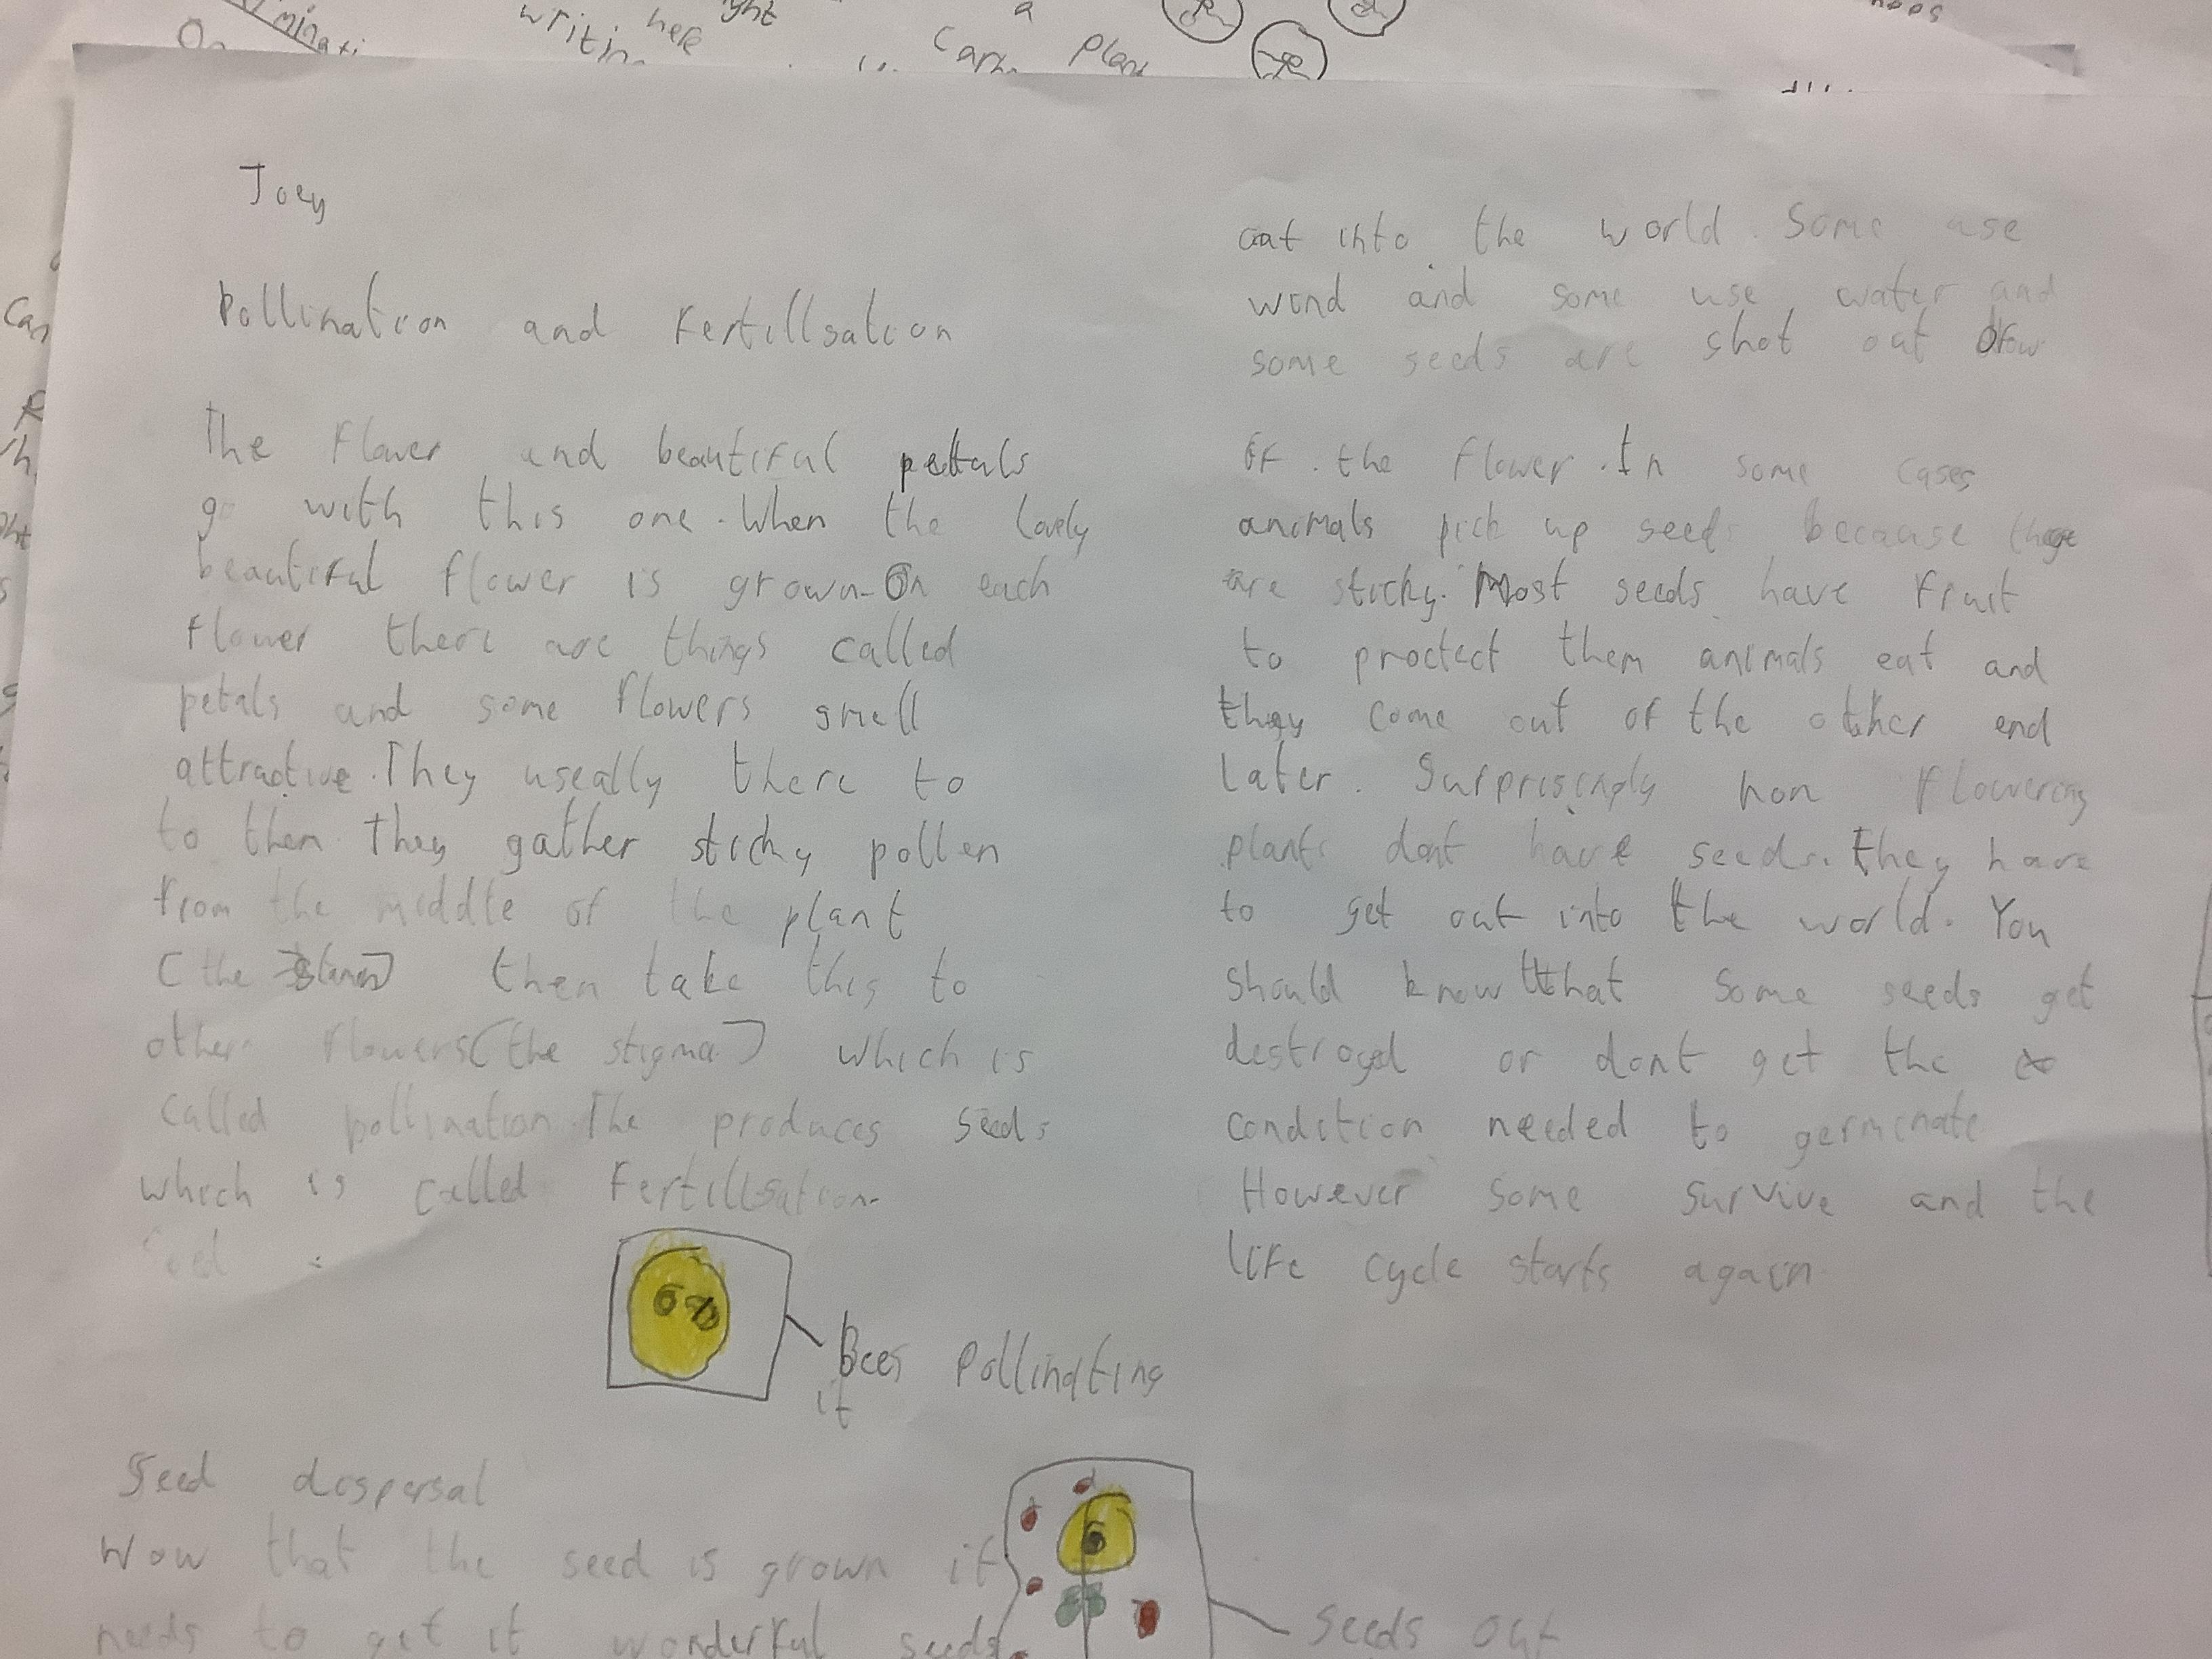 Joey
Pollination and Fertillsation
The flower and beautiful petals
go with this one. When the lovely
beautiful flower is grown. On each
flower there are things called
petals and some flowers smell
attractive. They useally there to
to them. They gather sticky pollen
from the middle of the plant
(the stamen) then take this to
other flowers (the stigma) which is
called pollination. The produces seeds
which is called Fertillsation.
Bees Pollinating
it
Seed dispersal
Now that the seed is grown it
needs to get it wonderful seeds
out into the world. Some use
wind and some use water and
some seeds are shot out
of the flower. In some cases
animals pick up seeds because
are sticky. Most seeds have fruit
to proctect them animals eat and
they come out of the other end
later. Surprisingly non flowering
plants dont have seeds. they have
to get out into the world. You
should know that some seeds get
destroyed or dont get the
condition needed to germinate
However some survive and the
life cycle starts again.
Seeds out
writin
here
a
Plan